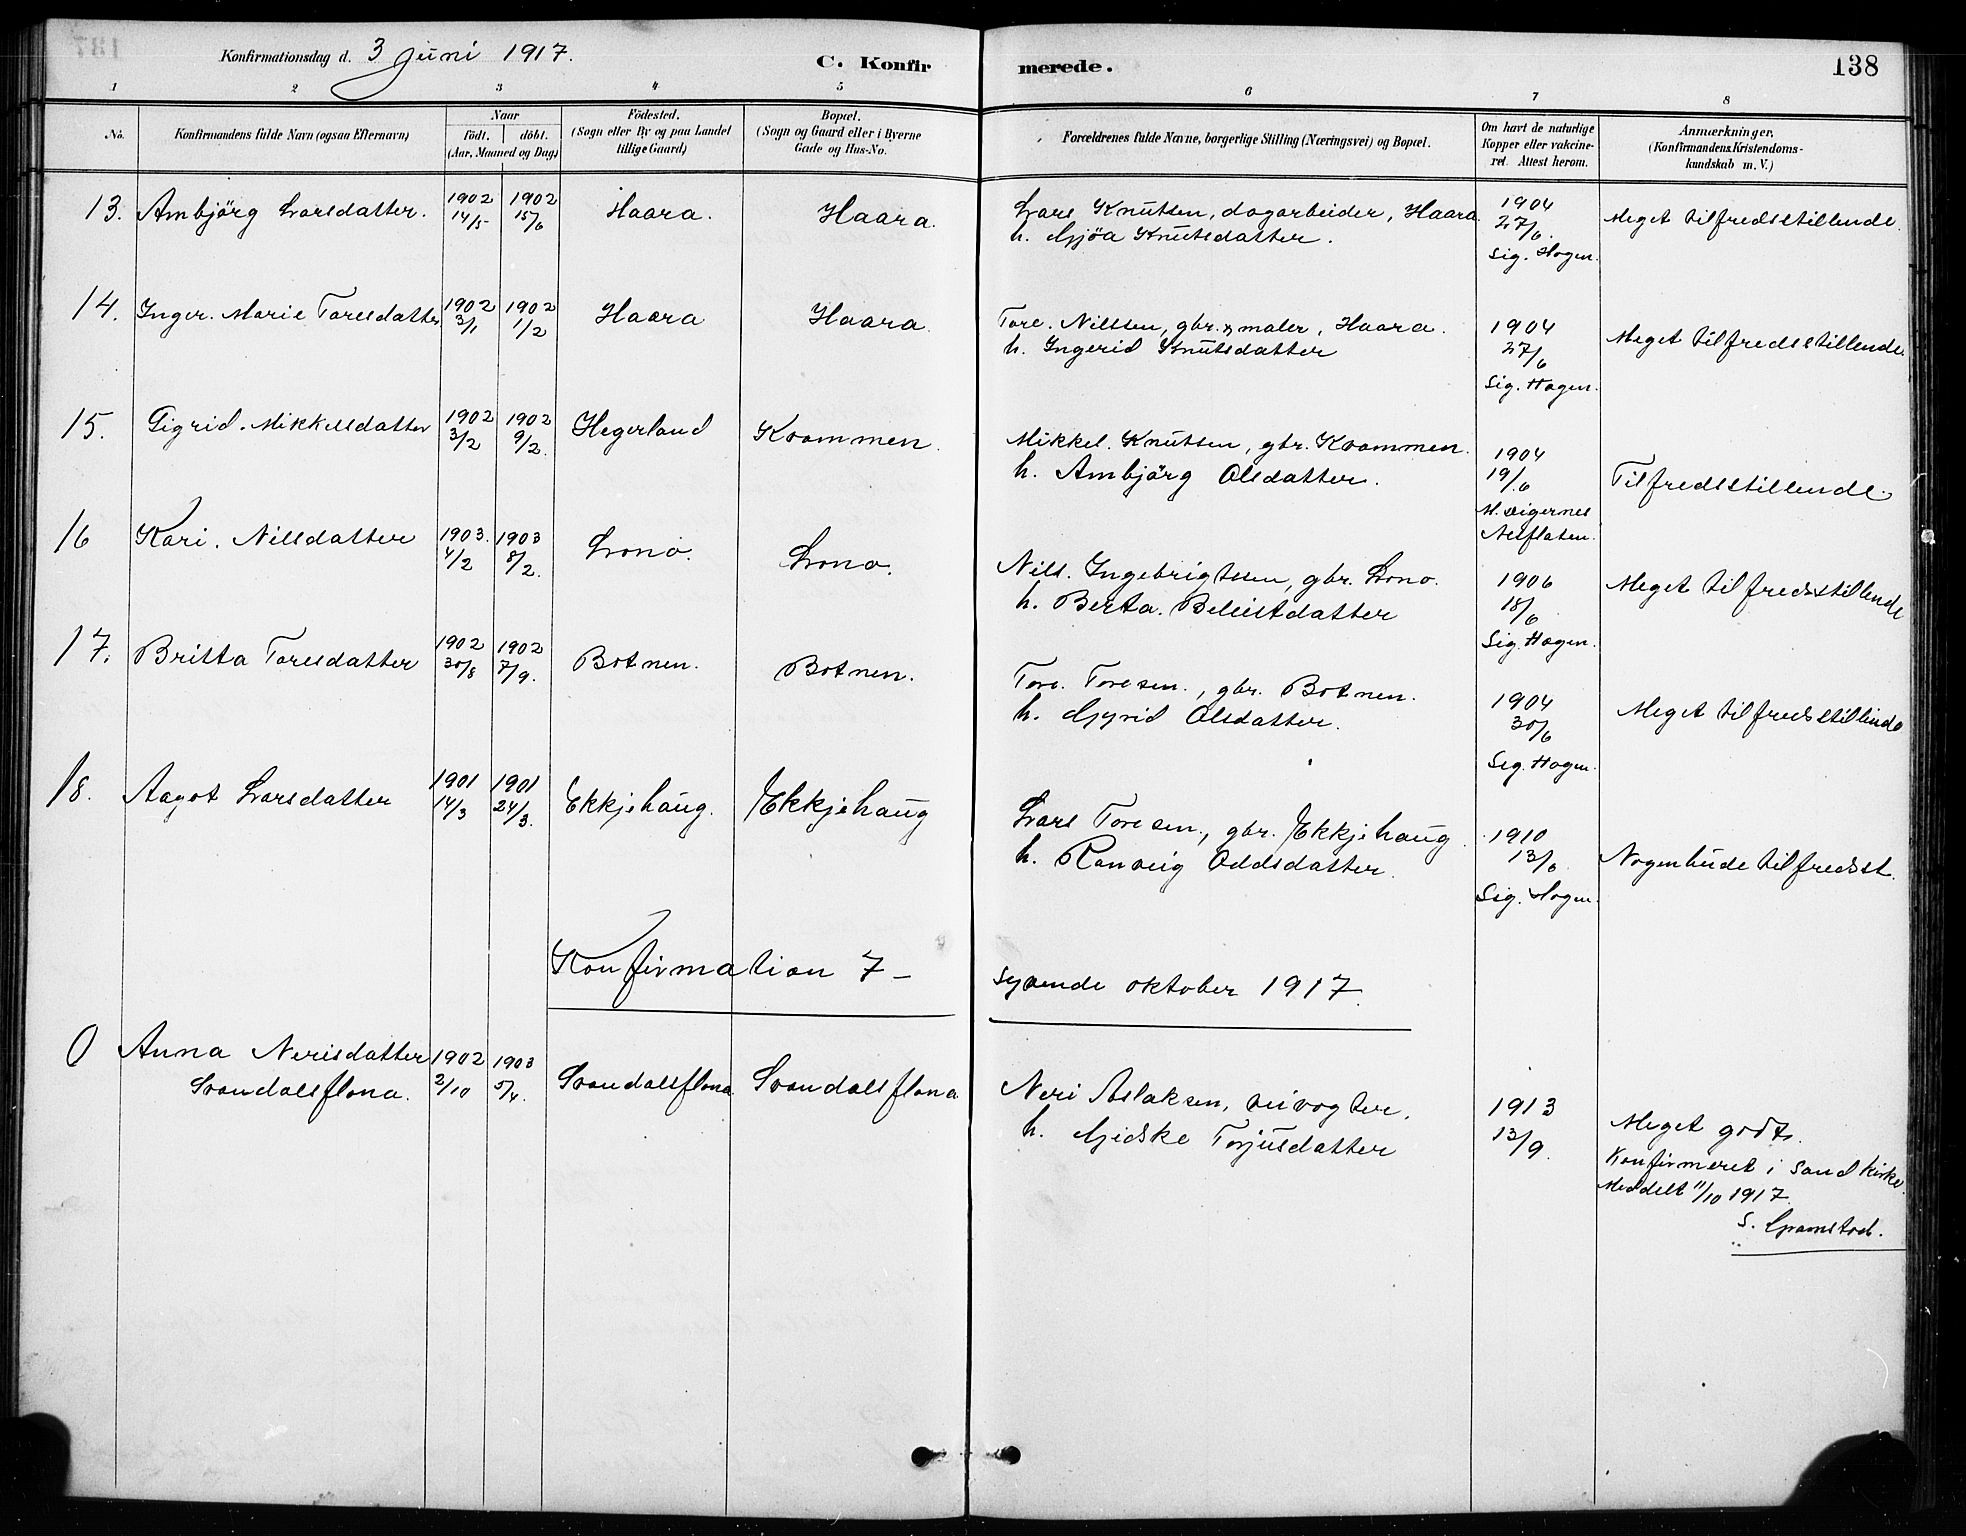 Konfirmationsdag d. 3 Juni 1917. C. Konfirmerede. 138
1 2 3 4 5 6 7 8
No.
Konfirmandens fulde Navn (ogsaa Efternavn)
Naar
født. døbt.
(Aar, Maaned og Dag)
Fødested.
(Sogn eller By og paa Landet
tillige Gaard)
Bopæl.
(Sogn og Gaard eller i Byerne
Gade og Hus-No.
Forældrenes fulde Navne, borgerlige Stilling (Næringsvei) og Bopæl.
Om havt de naturlige
Kopper eller vakcine-
ret. Attest herom.
Anmærkninger.
(Konfirmandens Kristendoms-
kundskab m. V.)
13. Ambjörg Larsdatter. 1902 14/5 1902 15/6 Haara. Haara. Lars Knutsen, dagarbeider, Haara
h. Gjöa Knutsdatter. 1904 27/6. Sig. Hagen. Meget tilfredsstillende.
14. Inger. Marie Toresdatter 1902 3/1 1902 1/2 Haara Haara. Tore. Nilssen, gbr. & maler, Haara.
h. Ingerid Knutsdatter 1904 27/6 Sig. Hagen. Meget tilfredsstillende
15. Sigrid. Mikkelsdatter 1902 3/2 1902 9/2. Hegerland Kvammen. Mikkel. Knutsen, gbr. Kvammen.
h. Ambjörg Olsdatter. 1904 19/6 Nesflaten. Tilfredsstillende.
16 Kari. Nilsdatter 1903. 4/2 1903 8/2. Lono. Lono. Nils. Ingebrigtsen, gbr. Lono.
h. Berta. Belestdatter 1906 18/6 Sig. Hagen. Meget tilfredsstillende
17. Britta Toresdatter 1902 30/8 1902 7/9. Botnen. Botnen. Tore. Toresen., gbr. Botnen.
h. Gyrid Olsdatter. 1904 30/6 Sig. Hagen. Meget tilfredsstillende
18. Aagot Larsdatter 1901 14/3 1901 24/3. Ekkjehaug. Ekkjehaug Lars Toresen., gbr. Ekkjehaug.
h. Ranveig Oddsdatter. 1910 13/6 Sig. Hagen. Nogenlunde tilfredsst.
Konfirmation 7- syvende oktober 1917.
0 Anna Nerisdatter
Svandalsflona. 1902 2/10 1903 5/4. Svandalsflona Svandalsflona Neri Aslaksen, veivogter.
h. Gjidske Torjusdatter 1913 13/9. Meget godt.
Konfirmeret i Sand kirke.
Meddelt 11/10 1917.
S. Gramstad.